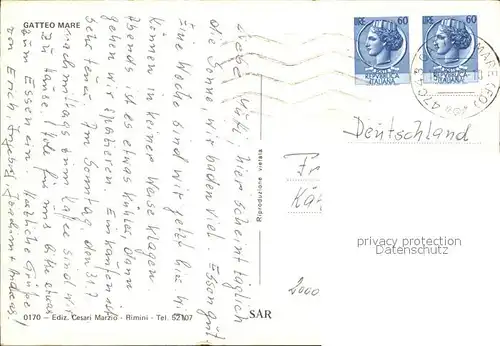 GATTEO MARE
Liebe Käti, hier scheint täglich
die Sonne, wir baden viel. Essen gut,
Eine Woche sind wir jetzt hier. Wir
können in keiner Weise klagen.
Abends ist es etwas kühler, dann
gehen wir spazieren. Einkaufen ist
sehr teuer. Im Sonntag, den 31.7
Nachmittags zum Kaffee sind wir
zu Hause. Hole für uns bitte etwas
zum Essen ein. Herzliche Grüße
von Erich, Ingeborg, Joachim + Andreas!
0170 - Ediz. Cesari Marzio - Rimini - Tel. 52107
Riproduzione vietata
SAR
LIRE 60
REPVBBLICA
ITALIANA
LIRE 60
REPVBBLICA
ITALIANA
MARE (FO)
Deutschland
Fr
Kät
privacy protection
Datenschutz
2000